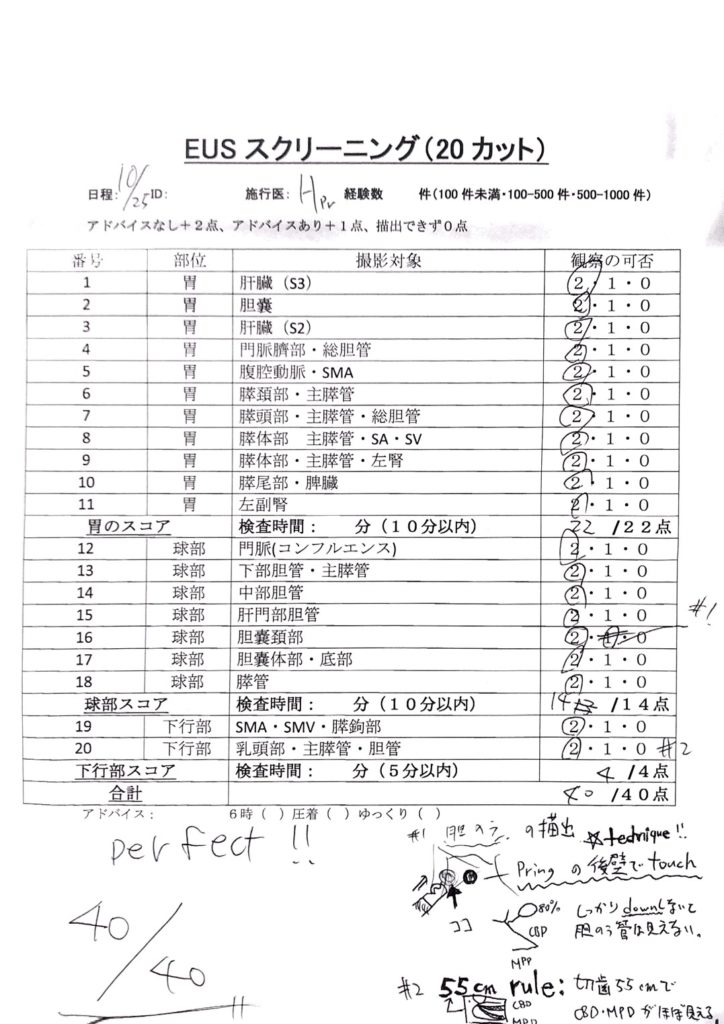 EUS スクリーニング(20 カット)
日程: 10/25 ID: 施行医: H 経験数 件(100 件未満・100-500 件・500-1000 件)
アドバイスなし+2点、アドバイスあり+1点、描出できず0点
番号 部位 撮影対象 観察の可否
1 胃 肝臓(S3) 2・1・0
2 胃 胆嚢 2・1・0
3 胃 肝臓(S2) 2・1・0
4 胃 門脈臍部・総胆管 2・1・0
5 胃 腹腔動脈・SMA 2・1・0
6 胃 膵頚部・主膵管 2・1・0
7 胃 膵頭部・主膵管・総胆管 2・1・0
8 胃 膵体部 主膵管・SA・SV 2・1・0
9 胃 膵体部・主膵管・左腎 2・1・0
10 胃 膵尾部・脾臓 2・1・0
11 胃 左副腎 2・1・0
胃のスコア 検査時間: 分(10分以内) 22 /22点
12 球部 門脈(コンフルエンス) 2・1・0
13 球部 下部胆管・主膵管 2・1・0
14 球部 中部胆管 2・1・0
15 球部 肝門部胆管 2・1・0
#1
16 球部 胆嚢頚部 2・1・0
17 球部 胆嚢体部・底部 2・1・0
18 球部 膵管 2・1・0
球部スコア 検査時間: 分(10分以内) 14 /14点
19 下行部 SMA・SMV・膵鉤部 2・1・0
20 下行部 乳頭部・主膵管・胆管 2・1・0 #2
下行部スコア 検査時間: 分(5分以内) 4 /4点
合計 40 /40点
アドバイス: 6時( )圧着( )ゆっくり( )
perfect!!
40/40
#1 胆のう の描出 ☆technique!!
Pring の後壁でtouch
ココ
80%
CBP
MPP
しっかりdownしないと
胆のう管は見えない。
#2 55cm rule: 切歯55cmで
CBD・MPDがほぼ見える
CBD
MPD